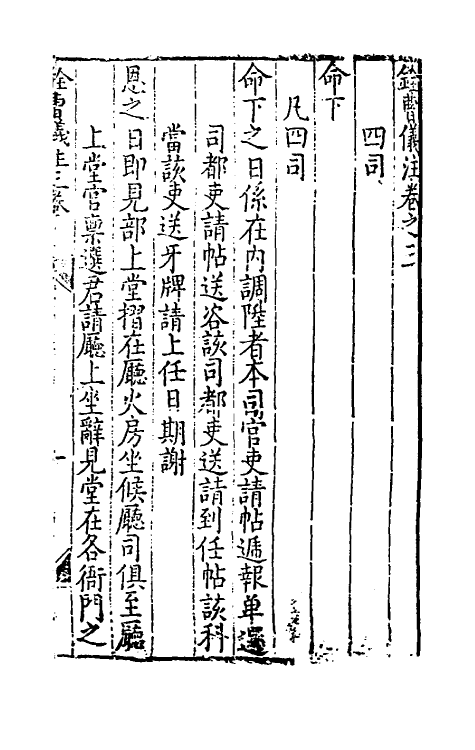 銓曹儀注卷之三
四司
命下
凡四司
命下之日係在內調陞者本司官吏請帖遞報單選
司都吏請帖送咨該司都吏送請到任帖該科
當該吏送牙牌請上任日期謝
恩之日即見部上堂揖在廳火房坐候廳司俱至廳
上堂官稟選君請廳上坐辭見堂在各衙門之